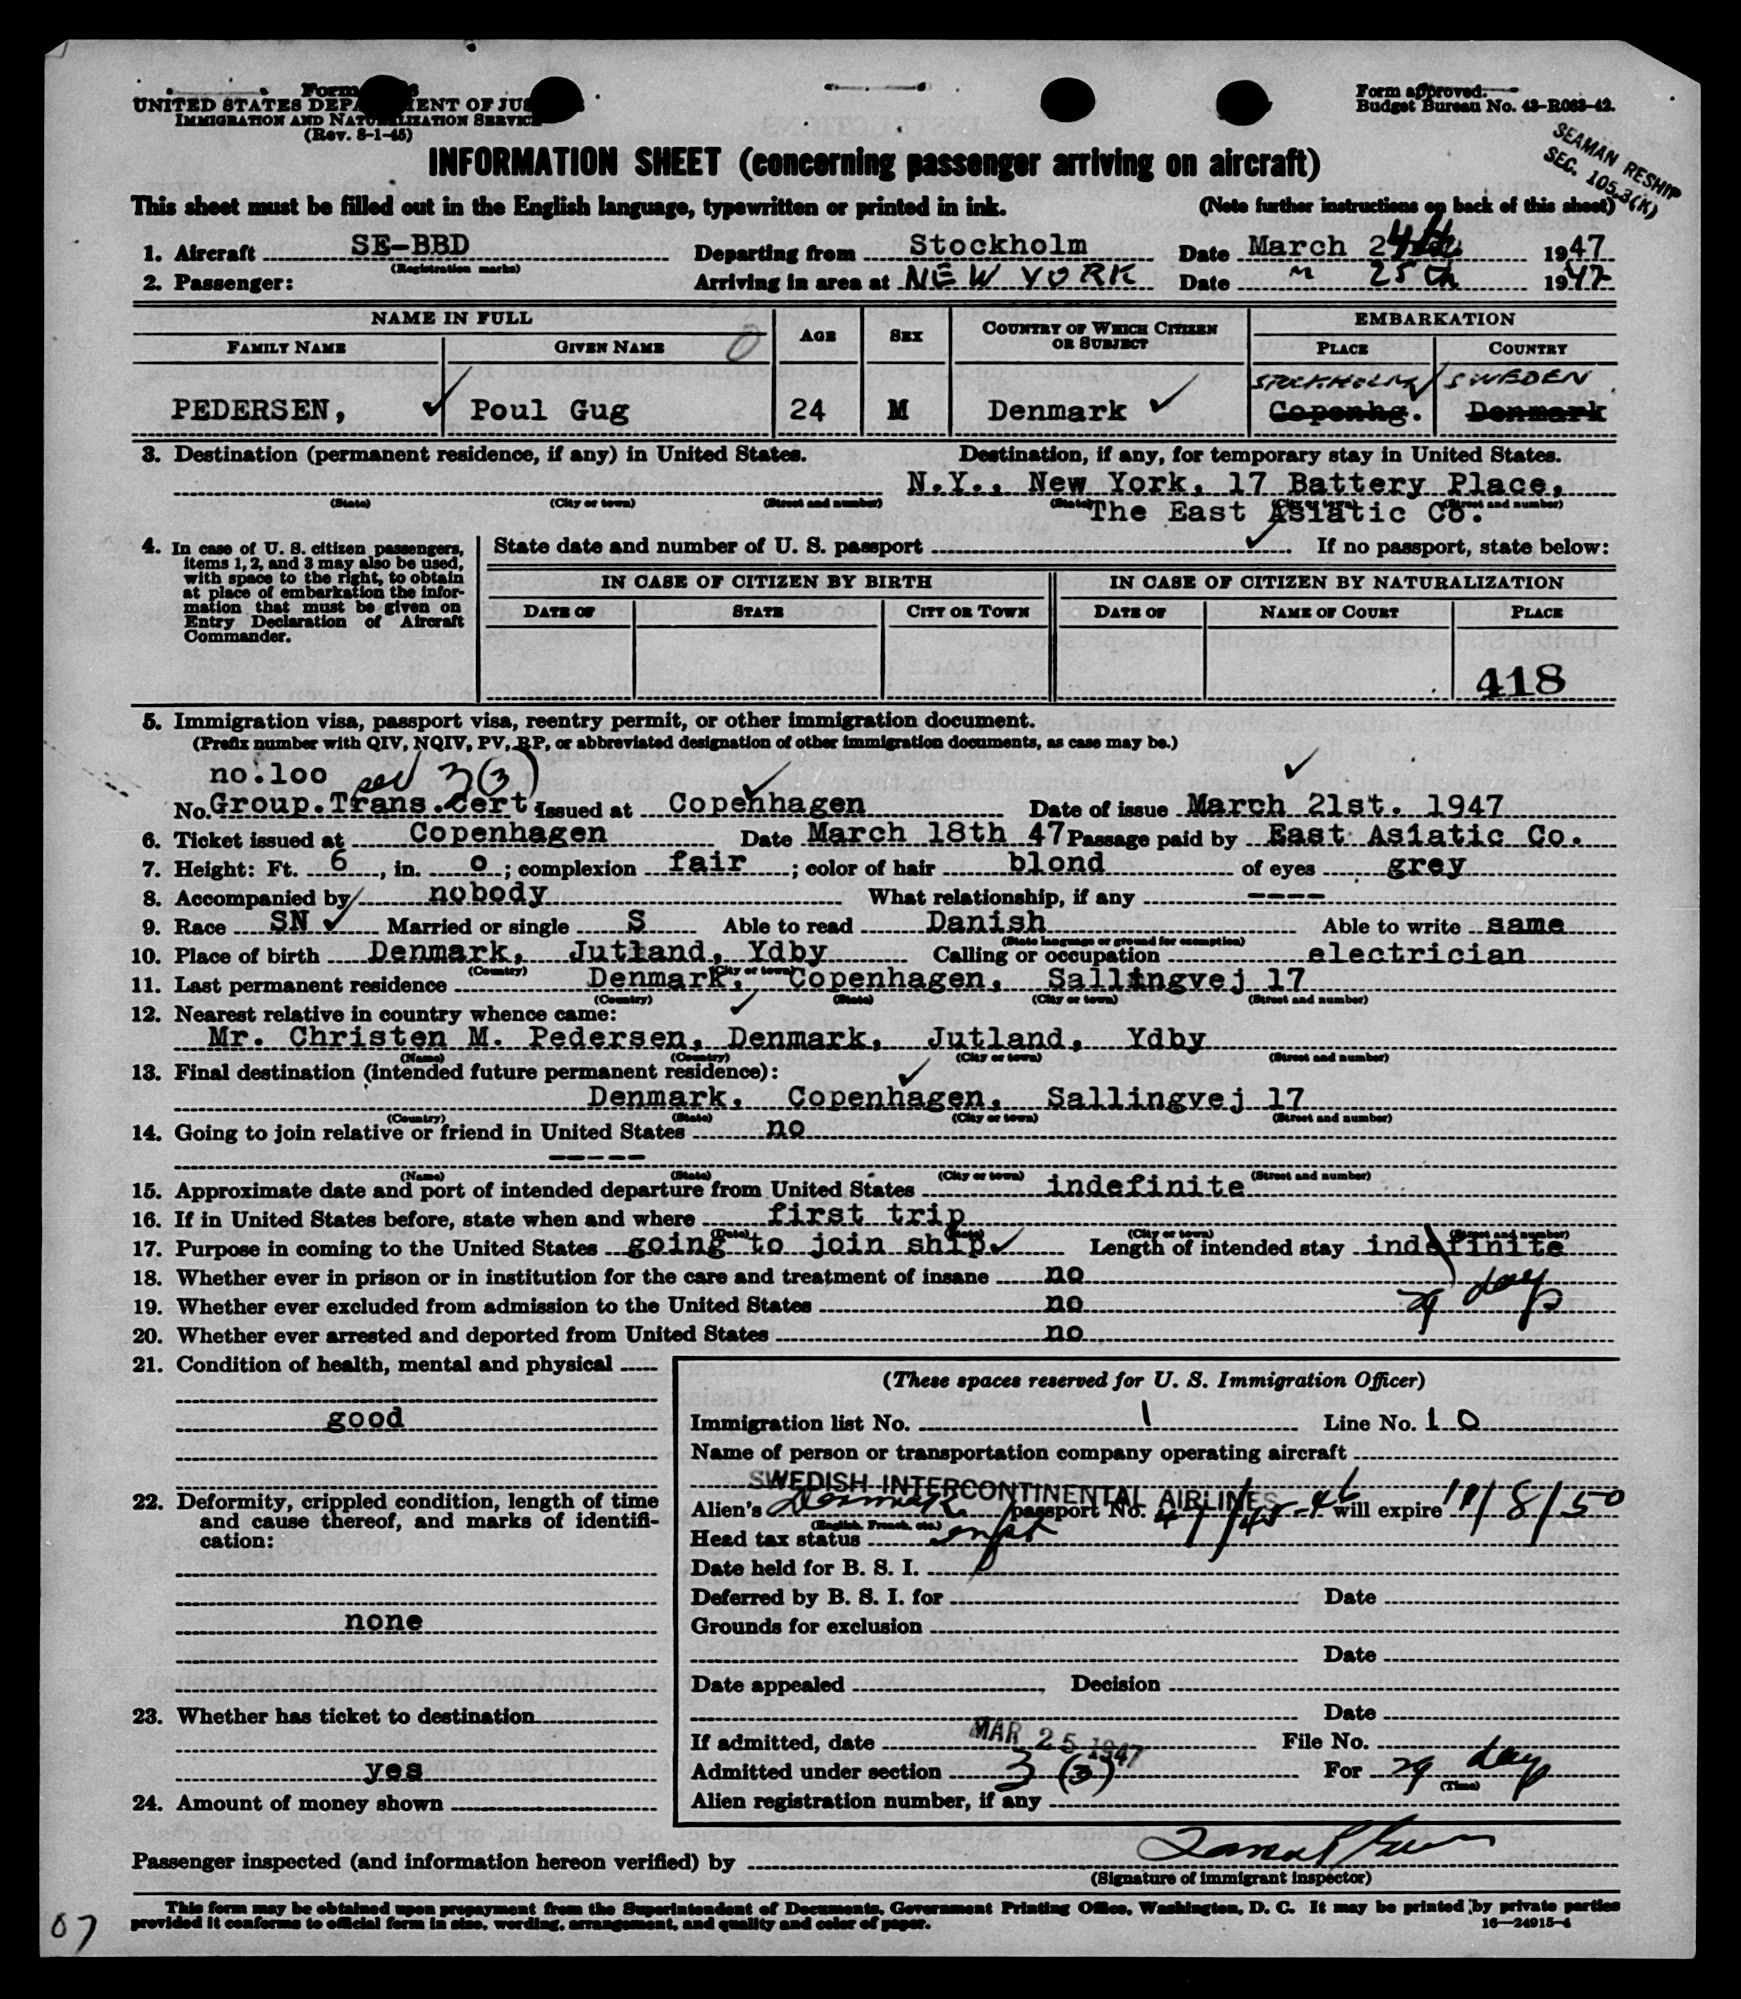 Form
UNITED STATES DEPARTMENT OF JUSTICE
IMMIGRATION AND NATURALIZATION SERVICE
(Rev. 8-1-45)
Form approved.
Budget Bureau No. 43-R063-42.
SEAMAN RESHIP
SEC. 105.3(K)
INFORMATION SHEET (concerning passenger arriving on aircraft)
This sheet must be filled out in the English language, typewritten or printed in ink. (Note further instructions on back of this sheet)
1. Aircraft SE-BBD Departing from Stockholm Date March 24th 1947
(Registration marks)
2. Passenger: Arriving in area at NEW YORK Date " 25th 1947
NAME IN FULL AGE SEX COUNTRY OF WHICH CITIZEN OR SUBJECT EMBARKATION
FAMILY NAME GIVEN NAME PLACE COUNTRY
STOCKHOLM SWEDEN
PEDERSEN, Poul Gug 24 M Denmark Copenhg. Denmark
3. Destination (permanent residence, if any) in United States. Destination, if any, for temporary stay in United States.
N.Y., New York, 17 Battery Place,
(State) (City or town) (Street and number) (State) (City or town) (Street and number)
The East Asiatic Co.
4. In case of U. S. citizen passengers, items 1, 2, and 3 may also be used, with space to the right, to obtain at place of embarkation the information that must be given on Entry Declaration of Aircraft Commander.
State date and number of U. S. passport If no passport, state below:
IN CASE OF CITIZEN BY BIRTH IN CASE OF CITIZEN BY NATURALIZATION
DATE OF STATE CITY OR TOWN DATE OF NAME OF COURT PLACE
418
5. Immigration visa, passport visa, reentry permit, or other immigration document.
(Prefix number with QIV, NQIV, PV, RP, or abbreviated designation of other immigration documents, as case may be.)
no.100 sec 3(3)
No. Group.Trans.Cert Issued at Copenhagen Date of issue March 21st. 1947
6. Ticket issued at Copenhagen Date March 18th 47 Passage paid by East Asiatic Co.
7. Height: Ft. 6, in. 0; complexion fair; color of hair blond of eyes grey
8. Accompanied by nobody What relationship, if any ----
9. Race SN Married or single S Able to read Danish Able to write same
(State language or ground for exemption)
10. Place of birth Denmark, Jutland, Ydby Calling or occupation electrician
(Country) (City or town)
11. Last permanent residence Denmark, Copenhagen, Sallingvej 17
(Country) (State) (City or town) (Street and number)
12. Nearest relative in country whence came:
Mr. Christen M. Pedersen, Denmark, Jutland, Ydby
(Name) (Country) (City or town) (Street and number)
13. Final destination (intended future permanent residence):
Denmark, Copenhagen, Sallingvej 17
(Country) (State) (City or town) (Street and number)
14. Going to join relative or friend in United States no
-----
(Name) (State) (City or town) (Street and number)
15. Approximate date and port of intended departure from United States indefinite
16. If in United States before, state when and where first trip
(Date) (State) (City or town) (Street and number)
17. Purpose in coming to the United States going to join ship. Length of intended stay indefinite
18. Whether ever in prison or in institution for the care and treatment of insane no
29 days
19. Whether ever excluded from admission to the United States no
20. Whether ever arrested and deported from United States no
21. Condition of health, mental and physical
good
22. Deformity, crippled condition, length of time and cause thereof, and marks of identification:
none
23. Whether has ticket to destination
yes
24. Amount of money shown
(These spaces reserved for U. S. Immigration Officer)
Immigration list No. 1 Line No. 10
Name of person or transportation company operating aircraft
SWEDISH INTERCONTINENTAL AIRLINES
Alien's Denmark passport No. will expire 11/8/50
(English, French, etc.)
Head tax status
Date held for B. S. I.
Deferred by B. S. I. for Date
Grounds for exclusion
Date
Date appealed Decision
Date
If admitted, date MAR 25 1947 File No.
Admitted under section 3 (3) For 29 days
(Time)
Alien registration number, if any
Passenger inspected (and information hereon verified) by
(Signature of immigrant inspector)
This form may be obtained upon prepayment from the Superintendent of Documents, Government Printing Office, Washington, D. C. It may be printed by private parties
provided it conforms to official form in size, wording, arrangement, and quality and color of paper.
16—24915-4
07